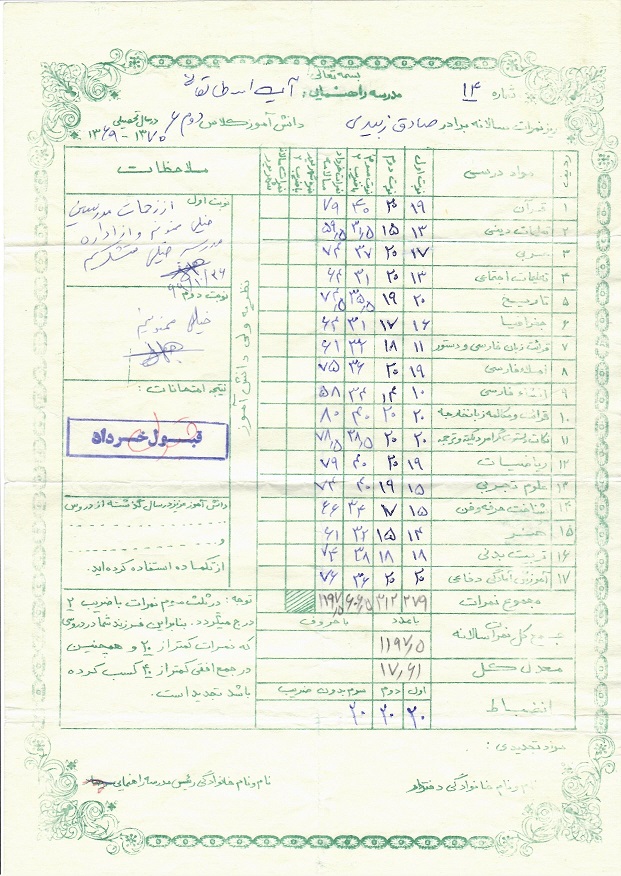 بسمه تعالی
شماره ۱۴ مدرسه راهنمایی: آیت الله طالقانی
ریز نمرات سالانه برادر صادق زبیدی دانش آموز کلاس دوم ۶ در سال تحصیلی ۱۳۷۰ - ۱۳۶۹
ردیف مواد درسی نوبت اول نوبت دوم نوبت سوم با ضریب ۲ ملاحظات
۱ قرآن ۱۹ ۲۰ ۴۰ ۷۹
۲ تعلیمات دینی ۱۳ ۱۵ ۳۱/۵ ۵۹/۵
۳ عربی ۱۷ ۲۰ ۳۷ ۷۴
۴ تعلیمات اجتماعی ۱۳ ۲۰ ۳۱ ۶۴
۵ تاریخ ۲۰ ۱۹ ۳۵/۵ ۷۴/۵
۶ جغرافیا ۱۶ ۱۷ ۳۱ ۶۴
۷ قرائت زبان فارسی و دستور ۱۱ ۱۸ ۳۲ ۶۱
۸ املاء فارسی ۱۹ ۲۰ ۳۶ ۷۵
۹ انشاء فارسی ۱۰ ۱۴ ۳۴ ۵۸
۱۰ قرائت و مکالمه زبان خارجه ۲۰ ۲۰ ۴۰ ۸۰
۱۱ ۲۰ ۲۰ ۳۸/۵ ۷۸/۵
۱۲ ریاضیات ۱۹ ۲۰ ۴۰ ۷۹
۱۳ علوم تجربی ۱۵ ۱۹ ۴۰ ۷۴
۱۴ شناخت حرفه و فن ۱۵ ۱۷ ۳۴ ۶۶
۱۵ هنر ۱۴ ۱۵ ۳۲ ۶۱
۱۶ تربیت بدنی ۱۸ ۱۸ ۳۸ ۷۴
۱۷ آموزش آمادگی دفاعی ۲۰ ۲۰ ۳۶ ۷۶
مجموع نمرات ۲۷۹ ۳۱۲ ۶۰۶/۵ ۱۱۹۷/۵
جمع کل نمرات سالانه با عدد با حروف
۱۱۹۷/۵
معدل کل ۱۷/۶۱
انضباط اول دوم سوم بدون ضریب
۲۰ ۲۰ ۲۰
مواد تجدیدی :
نظریه ولی دانش آموز
نوبت اول از زحمات مدرسین
خیلی ممنونم و از اداره
مدرسه خیلی متشکرم
نوبت دوم
خیلی ممنونیم
نتیجه امتحانات :
قبول خرداد
دانش آموز عزیز در سال گذشته از دروس
و
از تکماده استفاده کرده اید.
توجه : در ثلث سوم نمرات با ضریب ۲
درج میگردد. بنابراین فرزند شما در دروسی
که نمرات کمتر از ۲۰ و همچنین
در جمع افقی کمتر از ۴۰ کسب کرده
باشد تجدید است.
نام و نام خانوادگی دفتردار
نام و نام خانوادگی رئیس مدرسه راهنمایی